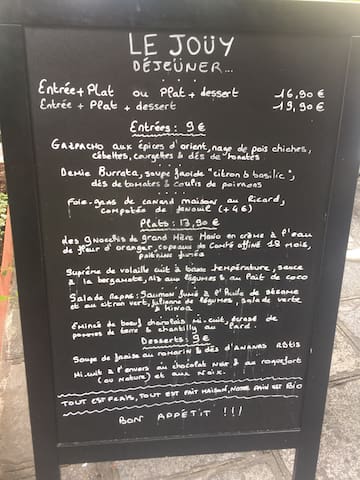 LE JOÜY
DÉJEÜNER...
Entrée + Plat ou Plat + dessert 16,90 €
Entrée + Plat + dessert 19,90 €
Entrées : 9 €
Gazpacho aux épices d'orient, nage de pois chiches,
cébettes, courgettes & dés de tomates
Demie Burrata, soupe froide "citron & basilic",
dés de tomates & coulis de poivrons
Foie-gras de canard maison au Ricard,
compotée de fenouil (+4€)
Plats : 13,90 €
des gnocchis de grand Mère Mado en crème à l'eau
de fleur d'oranger, copeaux de Comté affiné 18 mois,
poitrine fumée
Suprême de volaille cuit à basse température, sauce
à la bergamote, riz aux légumes & au lait de coco
Salade Repas : Saumon fumé à l'huile de sésame
et au citron vert, julienne de légumes, salade verte
& kinoa
Émincé de boeuf charolais mi-cuit, écrasé de
pommes de terre & chantilly au lard.
Desserts : 9 €
Soupe de fraise au romarin & dés d'ananas rôtis
Mi-cuit à l'envers au chocolat noir & au roquefort
(ou nature) et aux noix.
TOUT EST FRAIS, TOUT EST FAIT MAISON, NOTRE PAIN EST BIO
BON APPÉTIT !!!